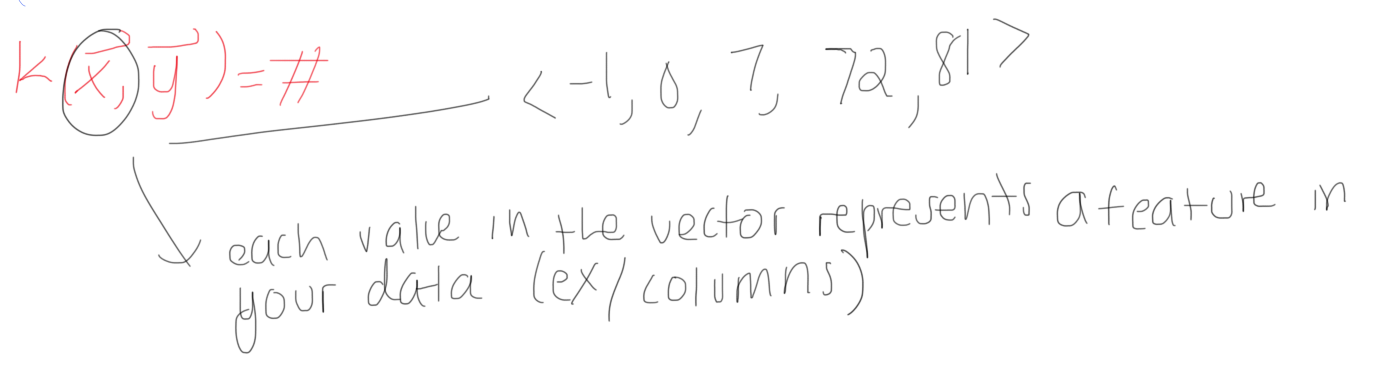 k(x⃗, y⃗) = # <-1, 0, 7, 72, 81>
each value in the vector represents a feature in
your data (ex/columns)